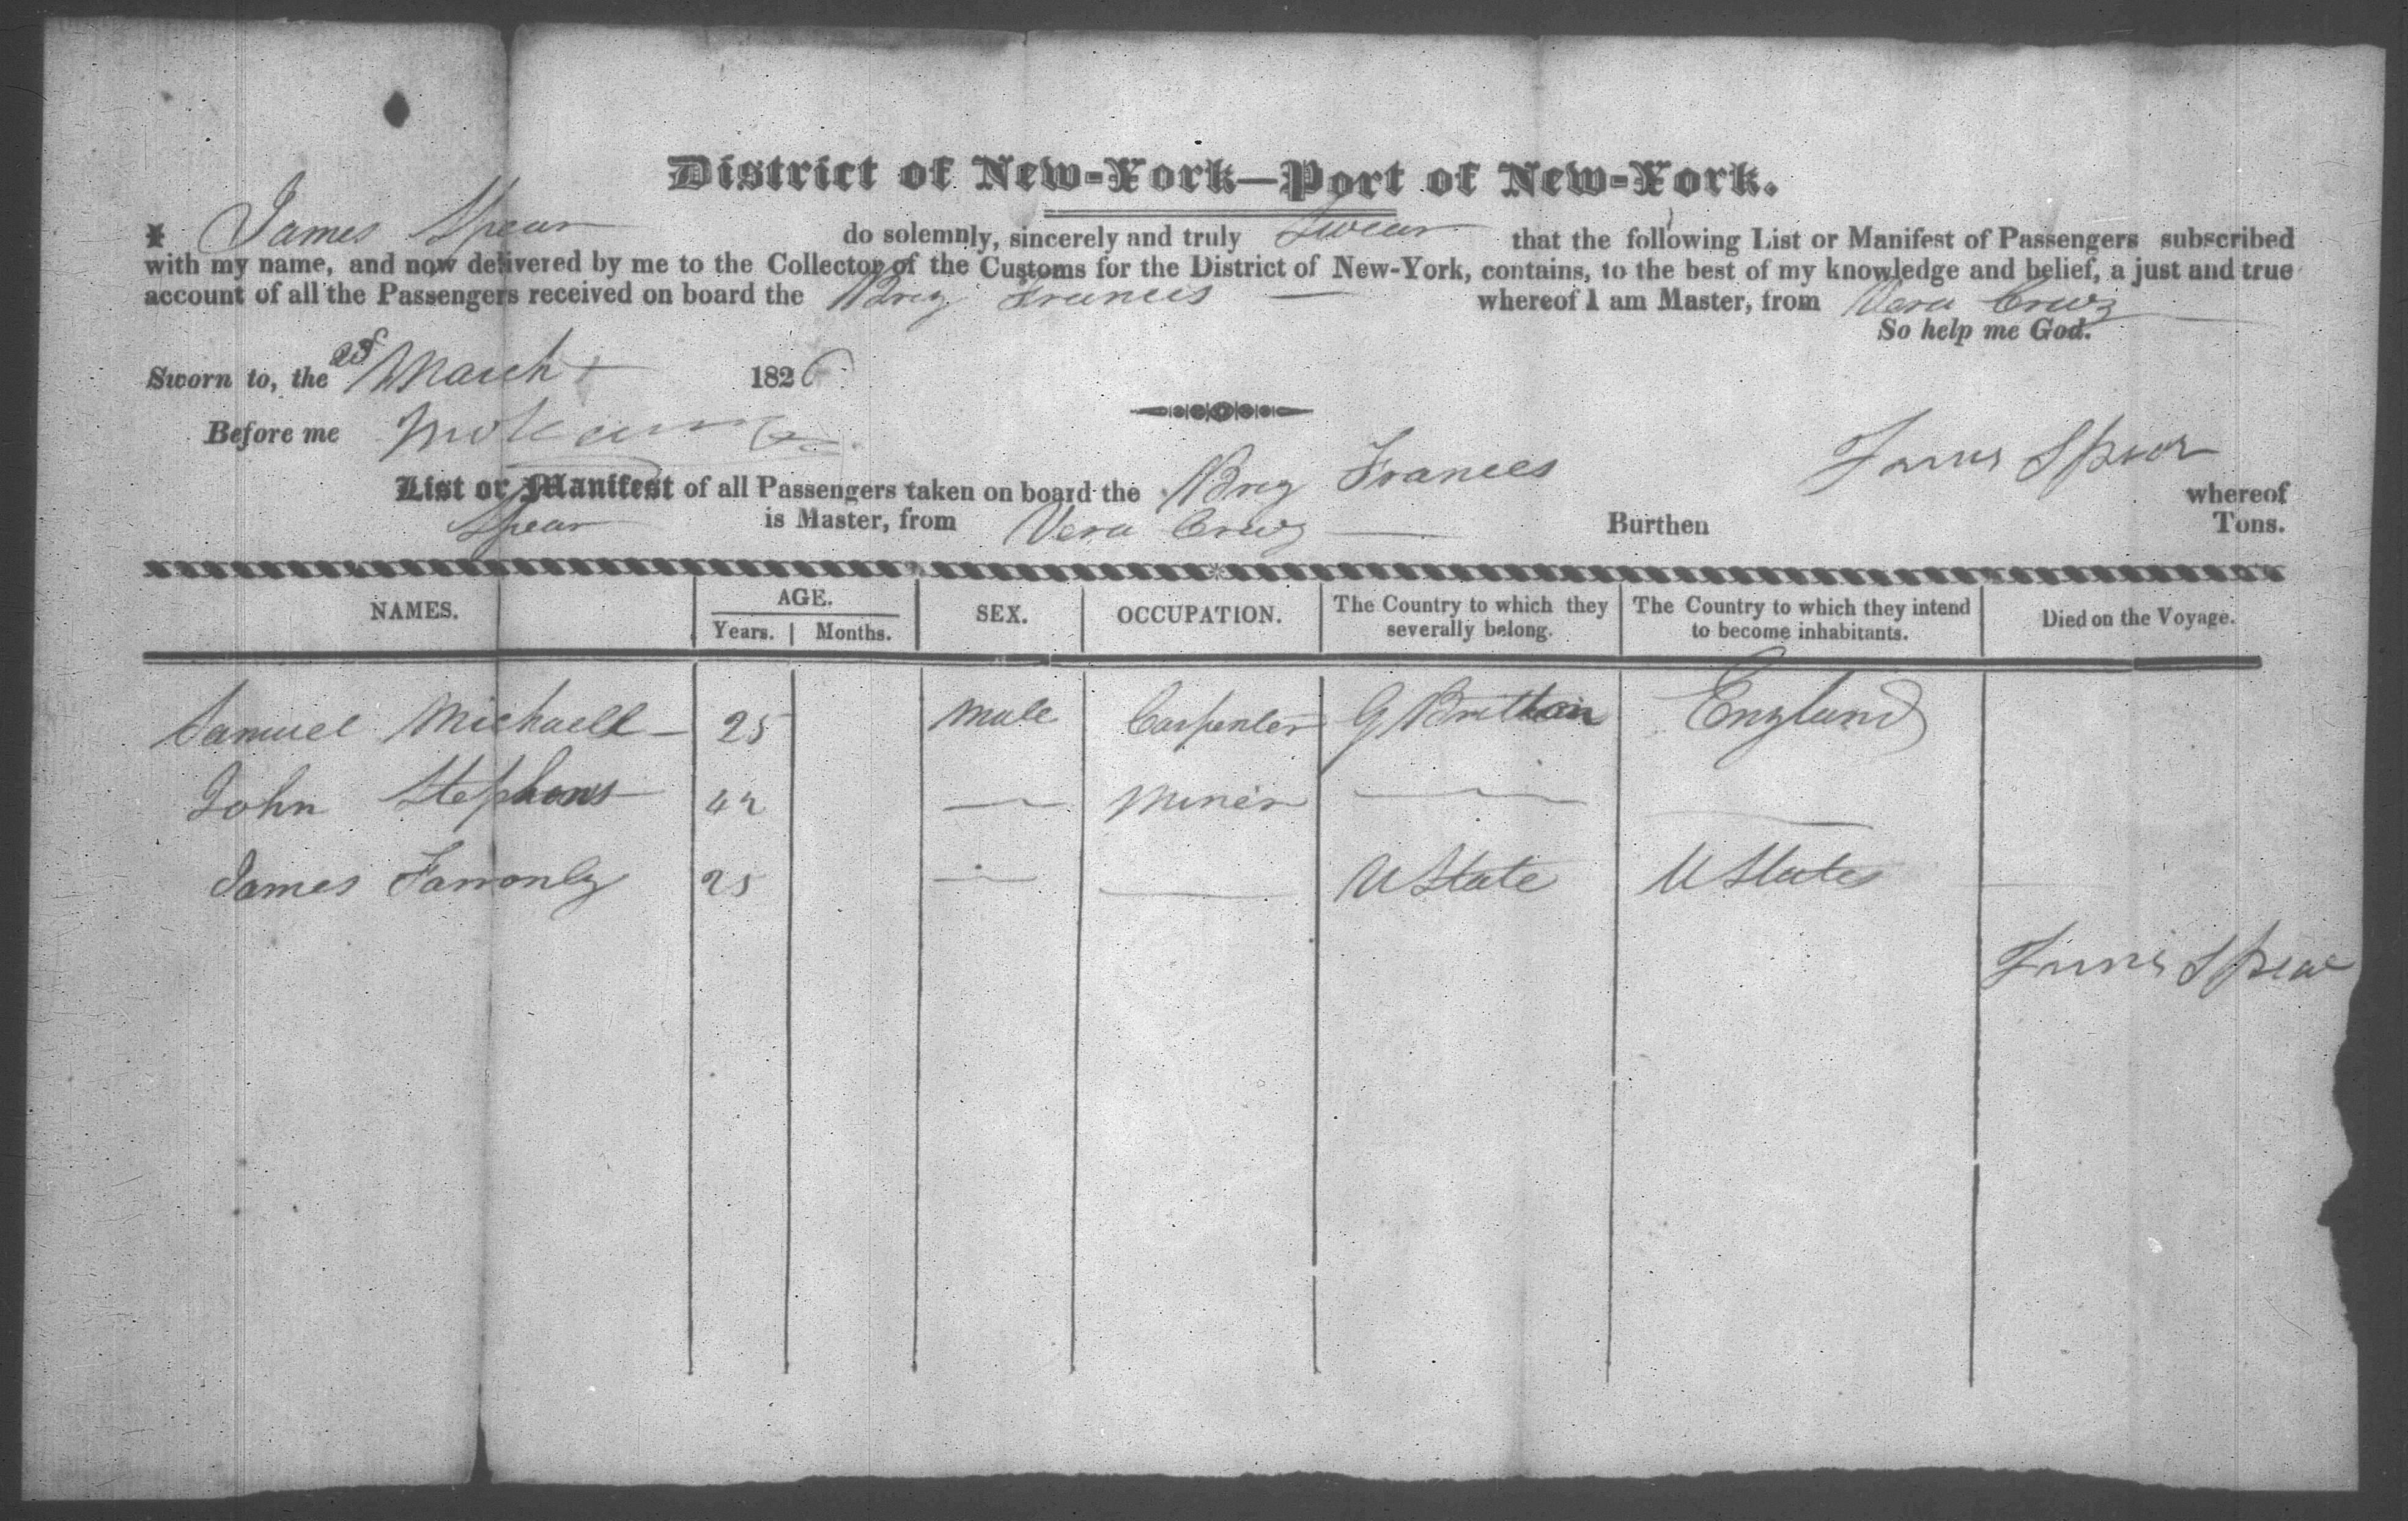 District of New-York—Port of New-York.
I James Spear do solemnly, sincerely and truly Swear that the following List or Manifest of Passengers subscribed
with my name, and now delivered by me to the Collector of the Customs for the District of New-York, contains, to the best of my knowledge and belief, a just and true
account of all the Passengers received on board the Brig Frances whereof I am Master, from Vera Cruz
So help me God.
Sworn to, the March 1826
Before me
James Spear
List or Manifest of all Passengers taken on board the Brig Frances whereof
Spear is Master, from Vera Cruz Burthen Tons.
NAMES. AGE. SEX. OCCUPATION. The Country to which they severally belong. The Country to which they intend to become inhabitants. Died on the Voyage.
Years. Months.
Samuel Michaell 25 Male Carpenter G Brittain England
John Stephens 42 — Miner — —
James 25 — — U State U States
James Spear